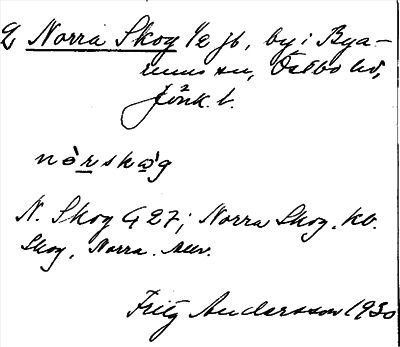 L Norra Skog 1/2 jb, by i Bya-
rums sn, Östbo hd,
Jönk. l.
nò̀rskɑ̀g
N. Skog G 27; Norra Skog. Kb.
Skog, Norra.
Fritz Andersson 1930